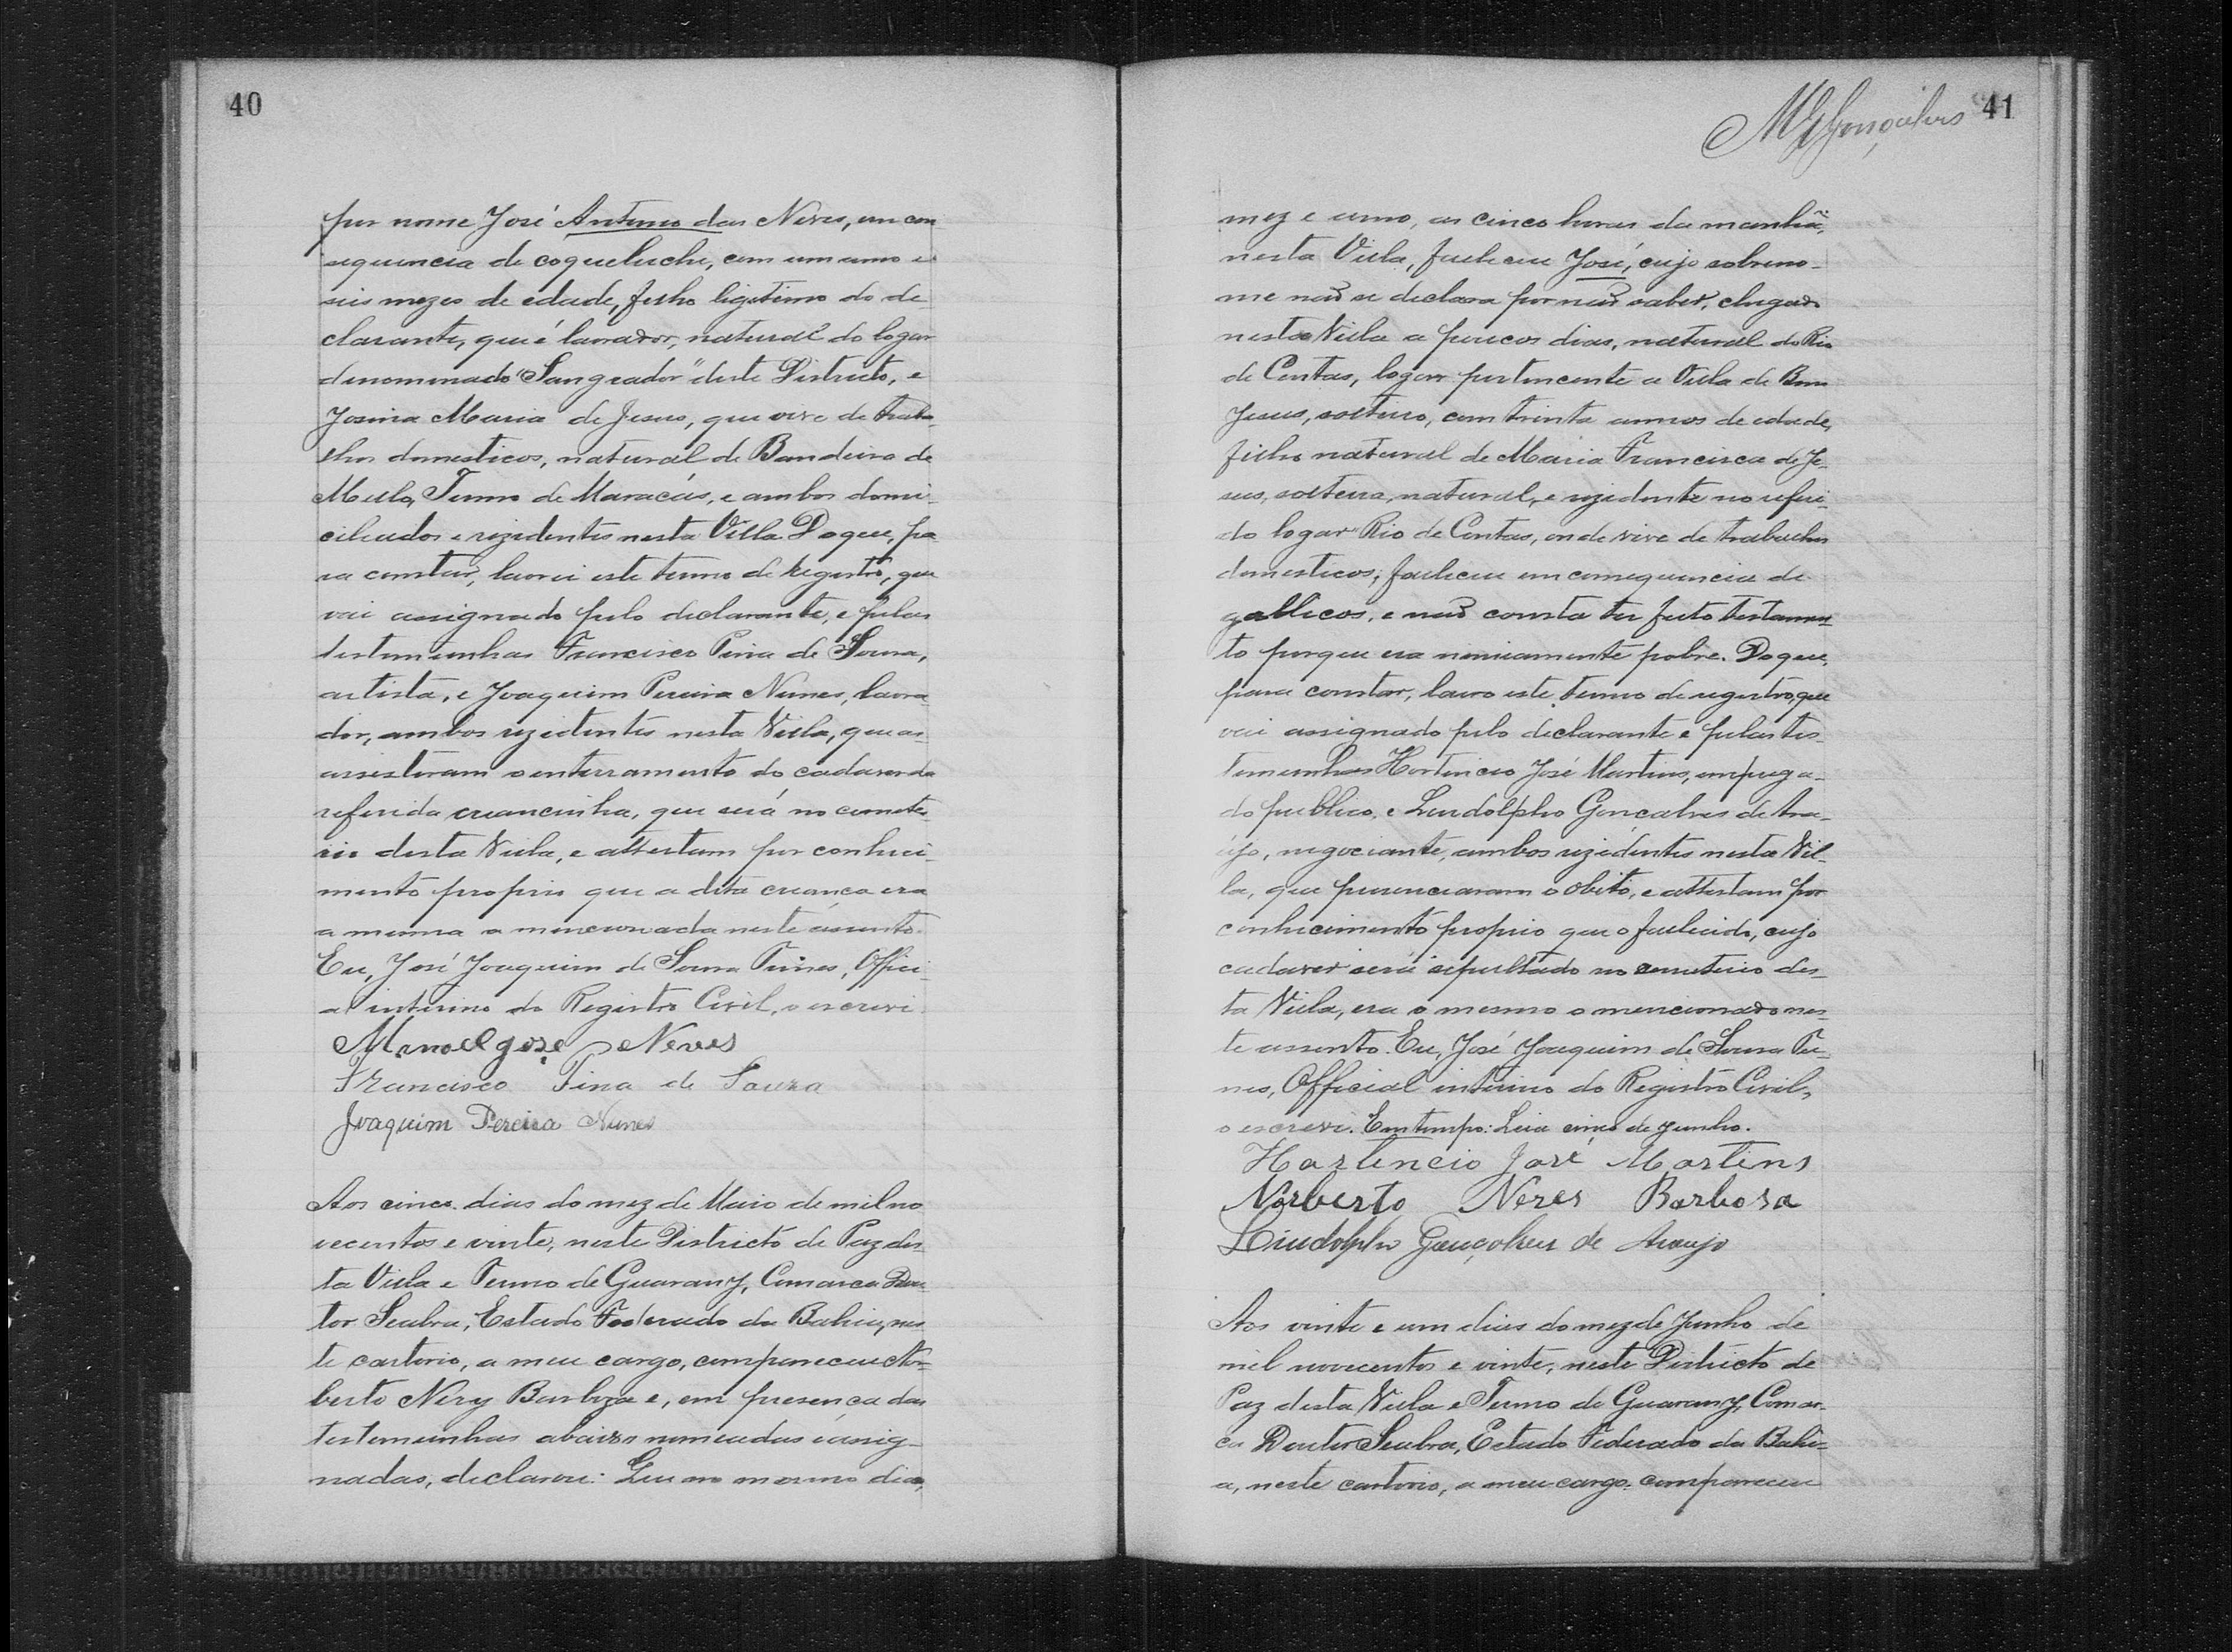 40
por nome José Antonio das Neves, em con
sequencia de coqueluche, com um anno e
seis mezes de edade, filho ligitimo do de
clarante, que é lavrador, natural do logar
denominado "Sangrador" deste Districto, e
Josina Maria de Jesus, que vive de traba
lhos domesticos, natural de Bandeira de
Mello, Termo de Maracás, e ambos domi
ciliados e rezidentes nesta Villa. Do que, pa
ra constar, lavrei este termo de registro, que
vai assignado pelo declarante, e pelas
testemunhas Francisco Pina de Souza,
artista, e Joaquim Pereira Nunes, lavra
dor, ambos rezidentes nesta Villa, que as
assistiram o enterramento do cadaver da
referida creancinha, que será no cemite
rio desta Villa, e attestam por conheci
mento proprio que a dita creança era
a mesma a mencionada neste assento.
Eu, José Joaquim de Sousa, Offici
al interino do Registro Civil, o escrevi.
Manoel Jose Neves
Francisco Pina de Souza
Joaquim Pereira Nunes
Aos cinco dias do mez de Maio de mil no
vecentos e vinte, neste Districto de Paz des
ta Villa e Termo de Guarany, Comarca Dou
tor Seabra, Estado Federado da Bahia, nes
te cartorio, a meu cargo, compareceu Nor
berto Nery Barboza e, em presença das
testemunhas abaixo nomeadas e assig
nadas, declarou: Que no mesmo dia,
MGonçalves 41
mez e anno, as cinco horas da manhã,
nesta Villa, falleceu José, cujo sobreno
me não se declara por não saber, chegado
nesta Villa a poucos dias, natural do Rio
de Contas, logar pertencente a Villa de Bom
Jesus, solteiro, com trinta annos de edade,
filho natural de Maria Francisca de Je
sus, solteira, natural, e rezidente no referi
do logar "Rio de Contas, onde vive de trabalhos
domesticos; falleceu em consequencia de
gallicos, e não consta ter feito testamen
to porque era nimiamente pobre. Do que,
para constar, lavro este termo de registro, que
vai assignado pelo declarante e pelas tes
temunhas Hortencio José Martins, emprega
do publico, e Lindolpho Gonçalves de Ara
újo, negociante, ambos rezidentes nesta Vil
la, que presenciaram o obito, e attestam por
conhecimento proprio que o fallecido, cujo
cadaver será sepultado no cemiterio des
ta Villa, era o mesmo o mencionado nes
te assento. Eu, José Joaquim de Sousa
Official interino do Registro Civil,
o escrevi. Em tempo: Leia cinco de Junho.
Hortencio José Martins
Norberto Neres Barbosa
Lindolpho Gonçalves de Araujo
Aos vinte e um dias do mez de Junho de
mil novecentos e vinte, neste Districto de
Paz desta Villa e Termo de Guarany, Comar
ca Doutor Seabra, Estado Federado da Bahi
a, neste cartorio, a meu cargo, compareceu